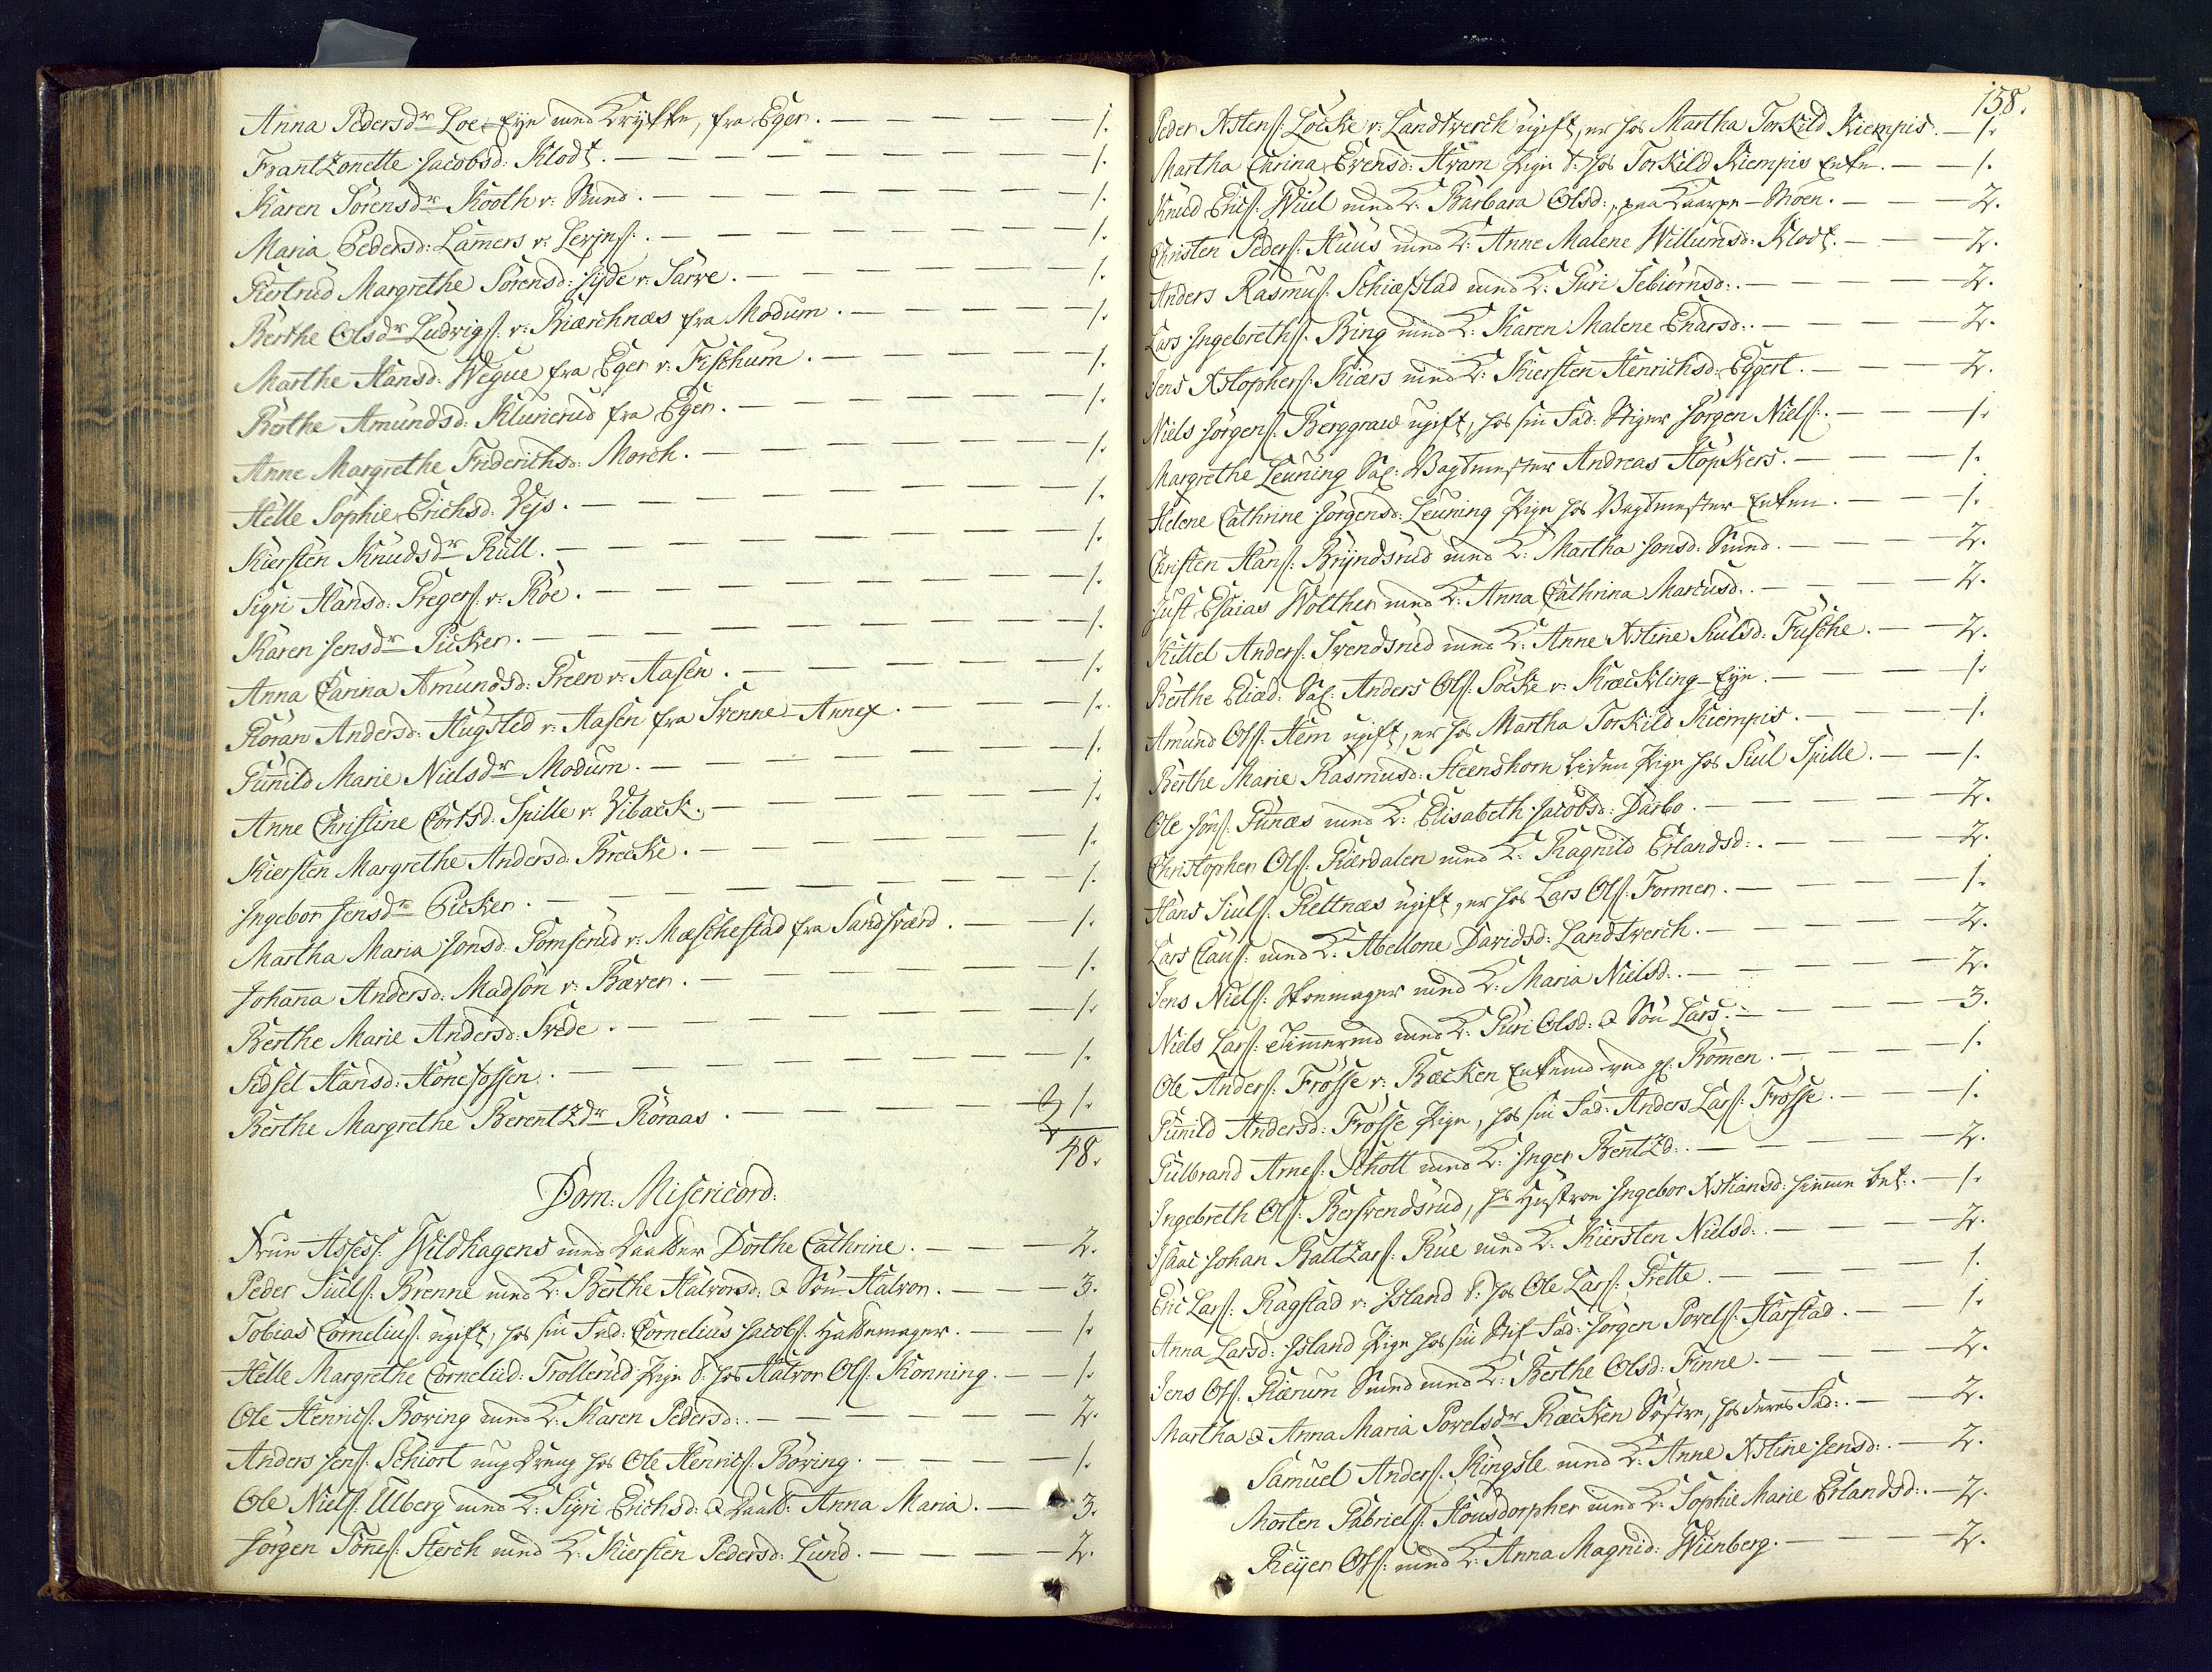 Anna Pedersdr Loe-Eye med Krykke, fra Eger. — 1.
Frantzonette Jacobsd: Klodt. — 1.
Karen Sörensdr Kooth v: Rund. — 1.
Maria Pedersd: Lamers v: Levins: — 1.
Giertrud Margrethe Sörensd: Hyde v: Sarve. — 1.
Berthe Olsdr Ludvigs: v: Biærchnæs fra Modum. — 1.
Marthe Hansd: Wegue fra Eger v: Fischum. — 1.
Berthe Amundsd: Klunerud fra Eger. — 1.
Anne Margrethe Friderichsd: Morch. — 1.
Helle Sophie Erichsd: Vejs. — 1.
Kiersten Knudsdr Rull. — 1.
Sigri Hansd: Pregers: v: Röe. — 1.
Karen Jensdr Picker. — 1.
Anna Carina Amundsd: Preen v: Aasen. — 1.
Göran Andersd: Hugsted v: Aasen fra Svenne-Annex. — 1.
Gunild Marie Nielsdr Modum. — 1.
Anne Christine Cortsd: Spille v: Vibaeck. — 1.
Kiersten Margrethe Andersd: Brecke. — 1.
Ingebor Jensdr Picker. — 1.
Martha Maria Jonsd: Gomserud v: Mæschestad fra Sandsværd. — 1.
Johana Andersd: Madsön v: Bæver. — 1.
Berthe Marie Andersd: Svede. — 1.
Sidsel Hansd: Hönefossen. — 1.
Berthe Margrethe Berentzdr Röraas. — 1.
48.
Dom: Misericord:
Frue Assess: Wildhagens med Daatter Dorthe Cathrine. — 2.
Peder Juuls: Brenne med K: Berthe Halvorsd: & Sön Halvor. — 3.
Tobias Cornelius: ugift, hos sin Fad: Cornelius Jacobs: Hattemager. — 1.
Helle Margrethe Cornelid: Trollerud Pige t: hos Halvor Ols: Konning. — 1.
Ole Henrics: Boring med K: Karen Pedersd: — 2.
Anders Jens: Schiort ung Dreng hos Ole Henrics: Böring. — 1.
Ole Niels: Ulberg med K: Sigri Erichsd: & Daatt: Anna Maria. — 3.
Jörgen Tönes: Sterch med K: Kiersten Pedersd: Lund. — 2.
158.
Peder Xstens: Löcke v: Landtverch ugift, er hos Martha Torkild Kiempis. — 1.
Martha Carina Evensd: Hvam Pige t: hos Torkild Kiempis Enke. — 1.
Knud Erics: Wiul med K: Barbara Olsd: paa Moen. — 2.
Christen Peders: Huus med K: Anne Malene Willumsd: Klodt. — 2.
Anders Rasmus: Schiefstad med K: Guri Tebiörnsd: — 2.
Lars Ingebreths: Bing med K: Karen Malene Enarsd: — 2.
Jens Xstophers: Kiærs med K: Kiersten Henrichsd: Eggert. — 2.
Niels Jörgens: Berggraw ugift, hos sin Fad: Stiger Jörgen Niels: — 1.
Margrethe Leuning Sal: Vagtmester Andreas Höpkers. — 1.
Helene Cathrine Jörgensd: Leuning Pige hos Vagtmester-Enken. — 1.
Christen Hans: Bryndsrud med K: Martha Jonsd: Rund. — 2.
Just Esaias Wolther med K: Anna Cathrina Marcusd: — 2.
Kittel Anders: Svendsrud med K: Anne Xstine Juulsd: Fusche. — 2.
Berthe Eliæd: Sal: Anders Ols: Söcke v: Kræckling-Eye. — 1.
Amund Ols: Hem ugift, er hos Martha Torkild Kiempis. — 1.
Berthe Marie Rasmusd: Steenshorn liden Pige hos Juul Spille. — 1.
Ole Jöns: Gunæs med K: Elisabeth Jacobsd: Darbo. — 2.
Christopher Ols: Giærdalen med K: Ragnild Erlandsd: — 2.
Hans Juuls: Gieltnæs ugift, er hos Lars Ols: Former. — 1.
Lars Claus: med K: Abellone Davidsd: Landtverch. — 2.
Jens Niels: Skomager med K: Maria Nielsd: — 2.
Niels Lars: Timmermd med K: Guri Olsd: & Sön Lars. — 3.
Ole Anders: Frösse v: Bæcken Enkemd ved gl: Römen. — 1.
Gunild Andersd: Frösse Pige, hos sin Fad: Anders Lars: Frösse. — 1.
Gulbrand Arnes: Schott med K: Inger Bentzd: — 2.
Ingebreth Ols: Bersvendsrud, hs Hustroe Ingebor Xstiansd: hiemme bet: — 1.
Isaac Johan Baltzars: Rue med K: Kiersten Nielsd: — 2.
Eric Lars: Ragstad v: Island t: hos Ole Lars: Grette. — 1.
Anna Larsd: Island Pige hos sin Stif-Fad: Jörgen Povels: Harstad. — 1.
Jens Ols: Giærum Smed med K: Berthe Olsd: Finne. — 2.
Martha & Anna Maria Povelsdr Bæcken Söstre, hos deres Fad: — 2.
Samuel Anders: Kingsle med K: Anne Xstine Jensd: — 2.
Morten Gabriels: Housdorpher med K: Sophie Marie Erlandsd: — 2.
Reyer Ols: med K: Anna Magnid: Wiinberg. — 2.